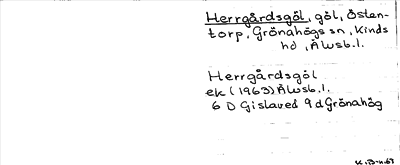 Herrgårdsgöl, göl, Östen-
torp, Grönahögs sn, Kinds
hd, Älvsb.l.
Herrgårdsgöl
ek (1963) Älvsb.l.
6 D Gislaved 9 d Grönahög